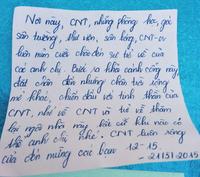 Nơi này, CNT, những phòng học, ghế
sân trường, thư viện, sân bóng, CNT-er
luôn mỉm cười chào đón sự trở về của
các anh chị. Bước ra khỏi cánh cổng này
đặt chân đến những chân trời rộng
mở khác, chiến đấu với tinh thần của
CNT, nhớ về CNT và trở về thăm
lại ngôi nhà này, bất cứ khi nào có
thể anh chị nhé. CNT luôn rộng
cửa đón mừng các bạn
12-15.
2015